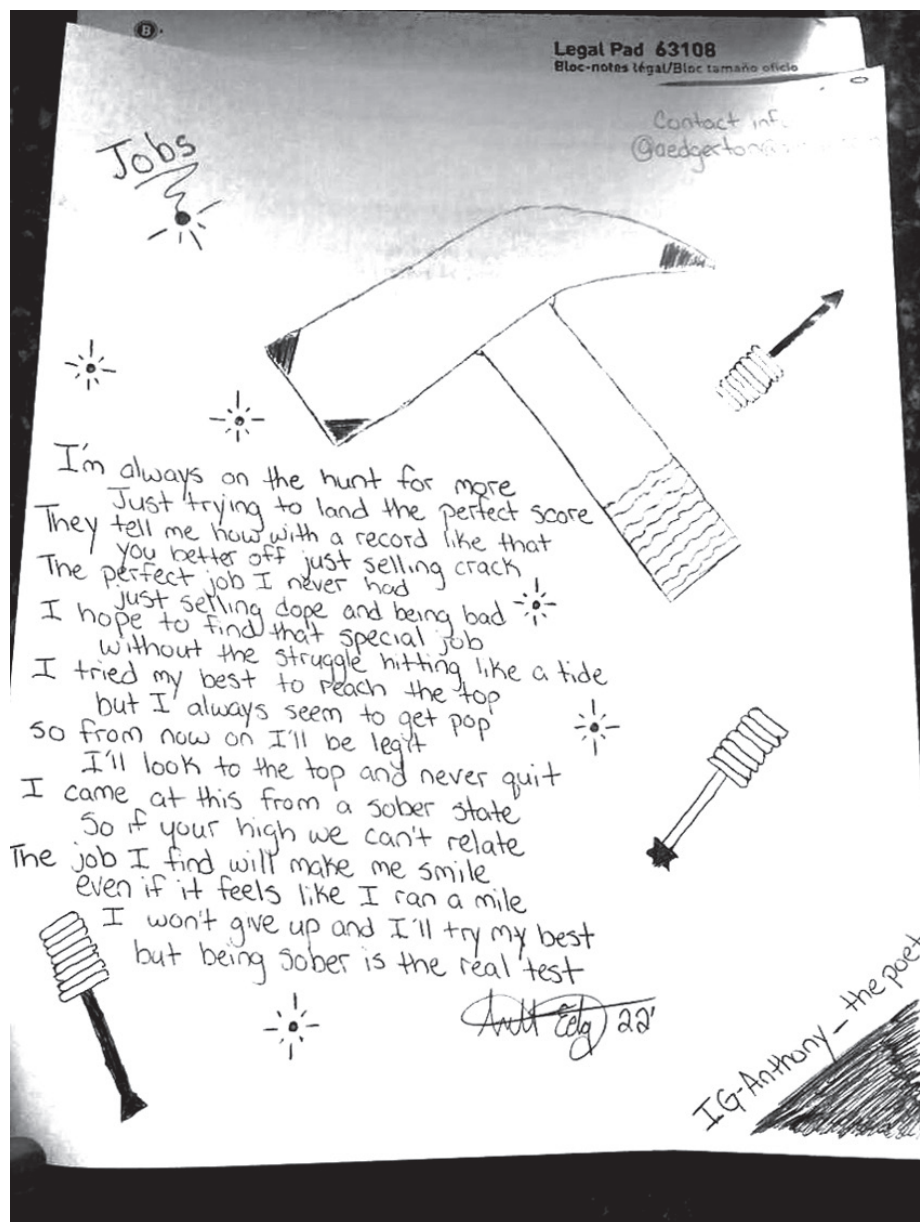 B
Legal Pad 63108
Bloc-notes légal/Bloc tamaño oficio
Contact inf.
Jobs
I'm always on the hunt for more
Just trying to land the perfect score
They tell me how with a record like that
you better off just selling crack
The perfect job I never had
just selling dope and being bad
I hope to find that special job
without the struggle hitting like a tide
I tried my best to reach the top
but I always seem to get pop
so from now on I'll be legit
I'll look to the top and never quit
I came at this from a sober state
So if your high we can't relate
The job I find will make me smile
even if it feels like I ran a mile
I won't give up and I'll try my best
but being sober is the real test
22'
IG-Anthony_the poet